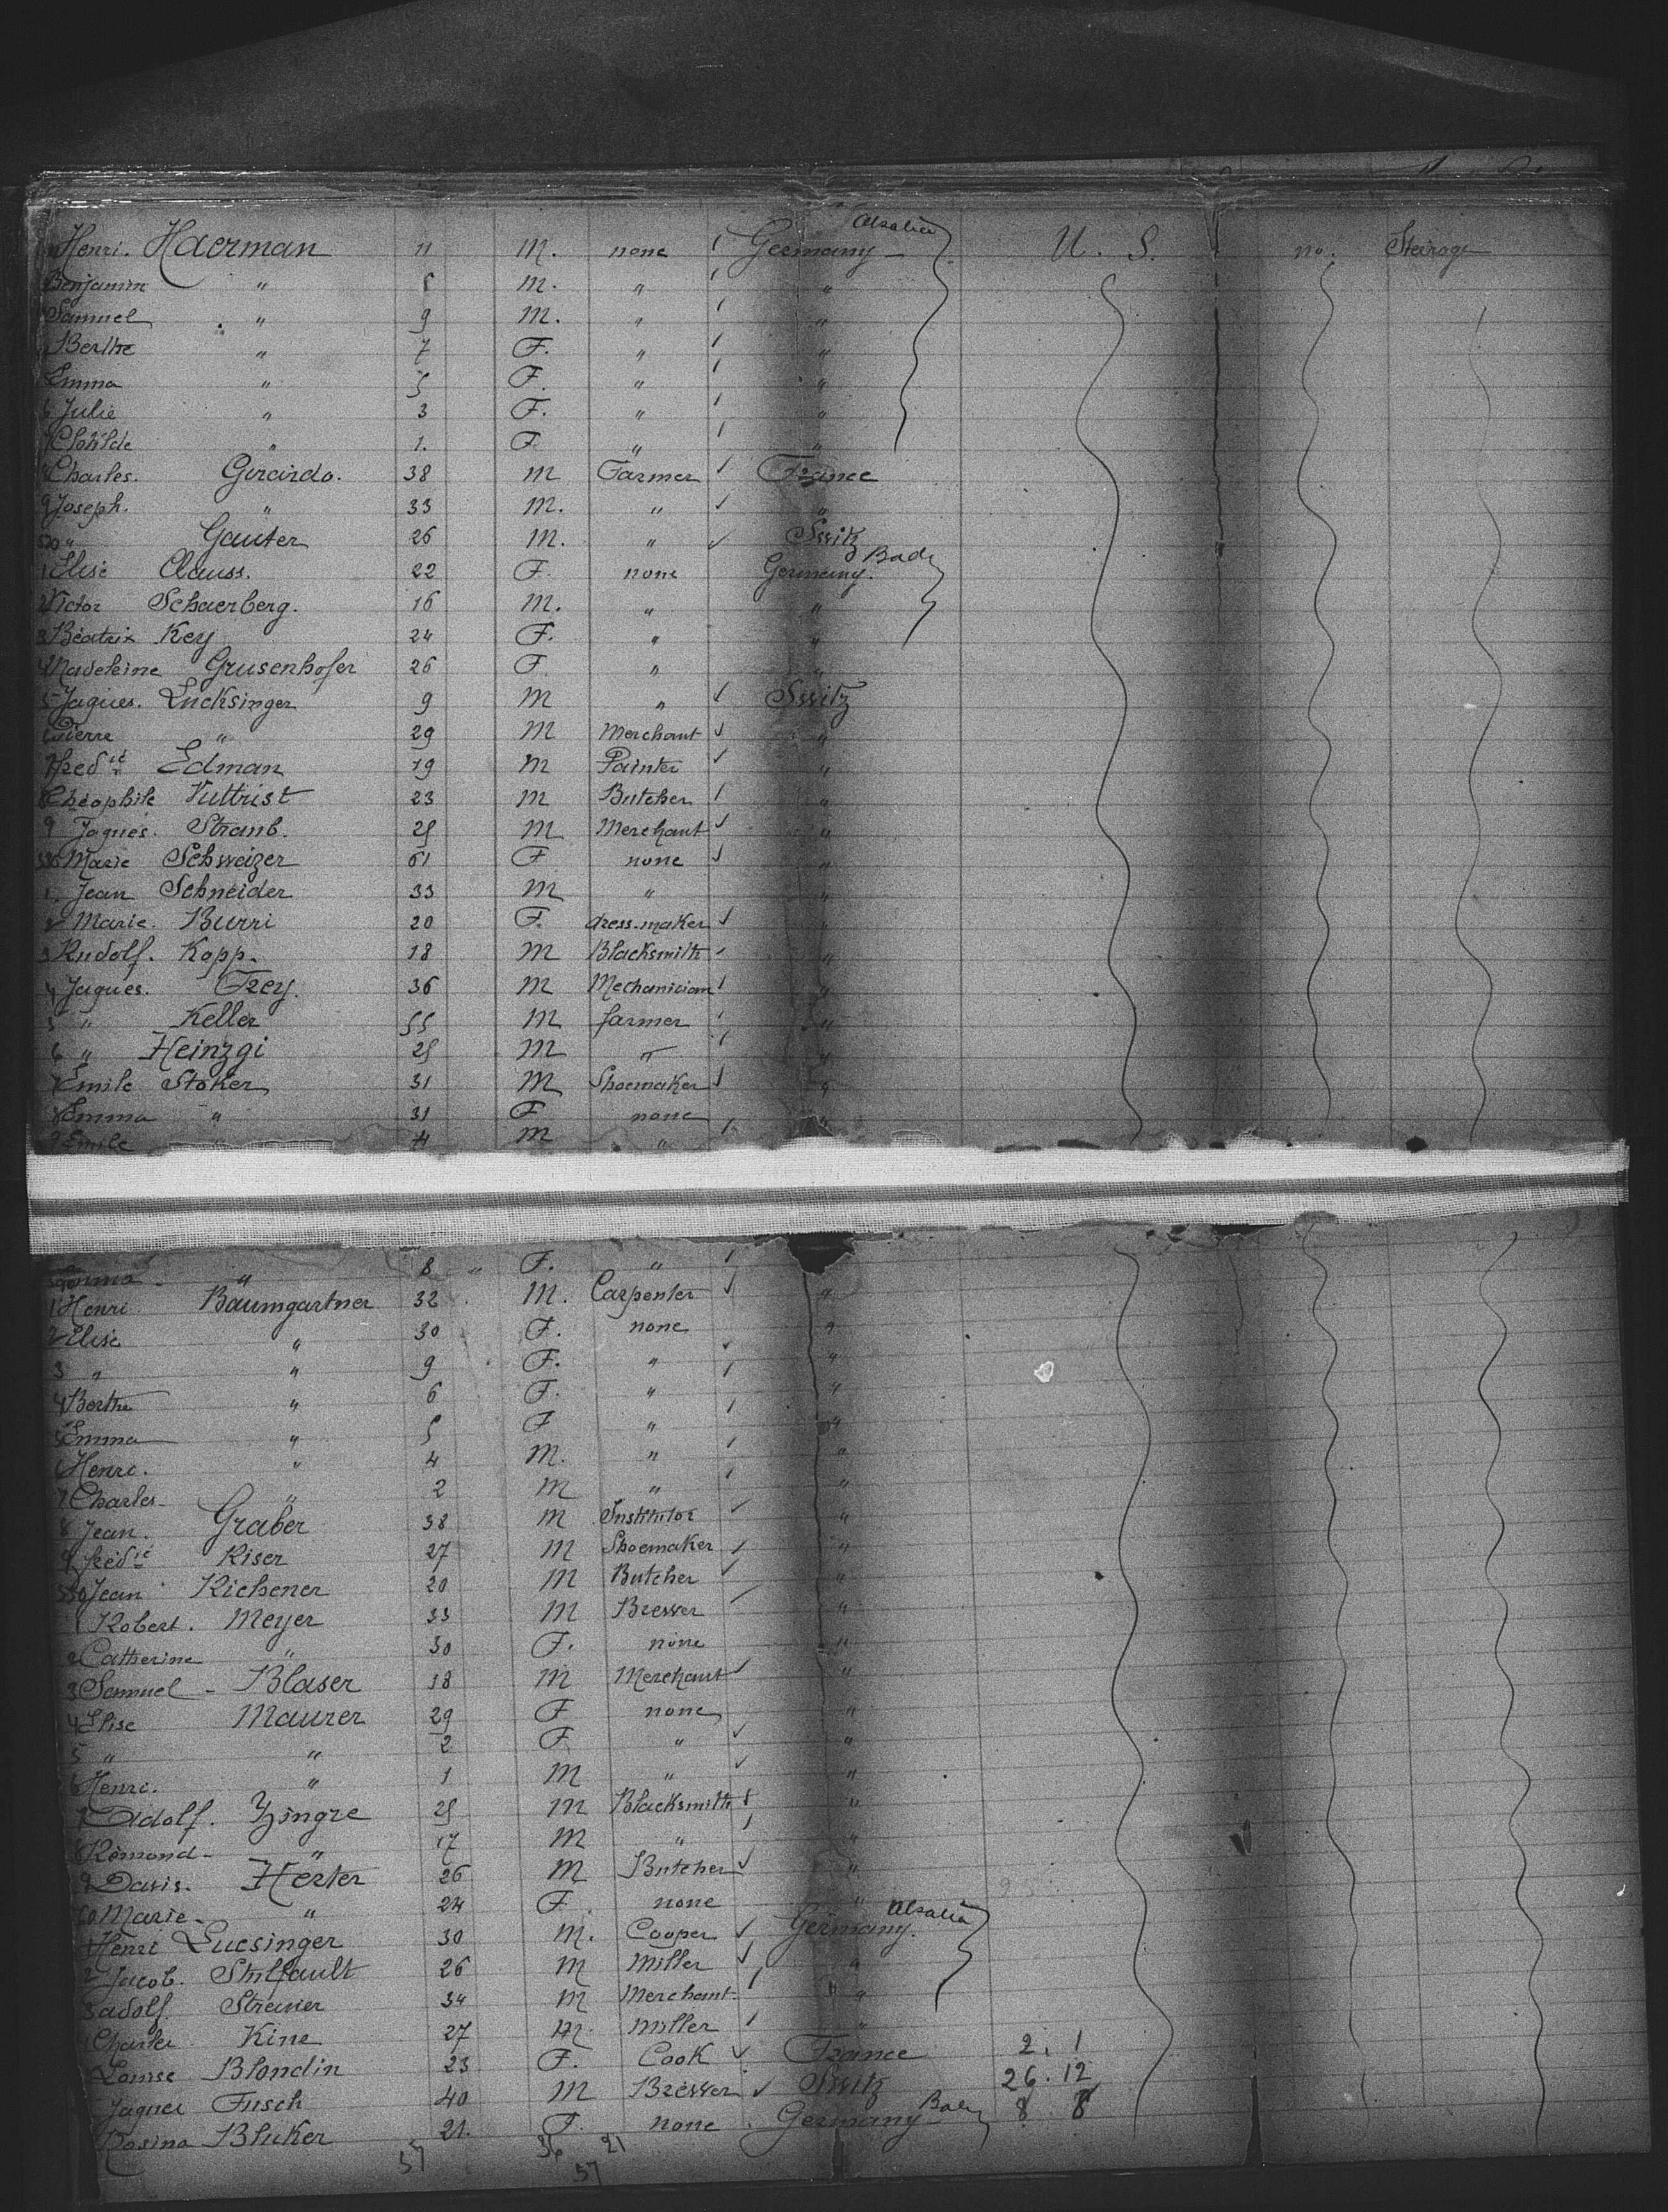 Alsatia
Henri. Haerman 11 M. none Germany U. S. no. Steirage
Benjamin " M. " "
Samuel " 9 M. " "
Berthe " 7 F. " "
Emma " 5 F. " "
6 Julie " 3 F. " "
7 Clotilde " 1. F. " "
8 Charles. Girardo. 38 M Farmer France
9 Joseph. " 33 M. " "
520 " Gauter 26 M. " Switz
1 Elise Clauss. 22 F. none Germany. Bade
2 Victor Schaerberg. 16 M. " "
3 Béatrix Key 24 F. " "
4 Madeleine Grusenhofer 26 F. " "
5 Jaques. Lucksinger 9 M " Switz
6 Pierre " 29 M Merchant "
7 Fred ic Edman 19 M Painter "
8 Théophile Vuttrist 23 M Butcher "
9 Jaques. Straub. 25 M Merchant "
Marie Schweizer 61 F none "
1. Jean Schneider 33 M " "
2 Marie. Burri 20 F. dress.maker "
3 Rudolf. Kopp. 18 M Blacksmith "
4 Jaques. Frey. 36 M Mechanician "
5 " Keller 55 M farmer "
6 " Heinzgi 25 M " "
7 Emile Stoker 31 M Shoemaker "
8 Emma " 31 F none "
9 Emile " M " "
Emma " 8 " F. "
1 Henri Baumgartner 32 M. Carpenter "
2 Elise " 30 F. none "
3 " " 9 F. " "
4 Berthe " 6 F. " "
5 Emma " 5 F " "
6 Henri. " 4 M. " "
7 Charles " 2 M " "
8 Jean. Graber 38 M Institutor "
9 fred ic Riser 27 M Shoemaker "
Jean Richener 20 M Butcher "
1 Robert. Meyer 33 M Brewer "
2 Catherine " 30 F. none "
3 Samuel - Blaser 18 M Merchant "
4 Elise Maurer 29 F none "
5 " " 2 F " "
6 Henri. " 1 M " "
7 Adolf. Zingre 25 M Blacksmith "
8 Rémond - " 17 M " "
9 Davis. Herter 26 M Butcher "
Marie - " 24 F. none "
1 Henri Lucsinger 30 M. Cooper Germany. Alsatia
2 Jacob. Stulfault 26 M Miller "
3 adolf. Strauier 34 M Merchant. "
Charles Kine 27 M Miller "
Louise Blondin 23 F. Cook France 2. 1
Jaques Fusch 40 M Brewer Switz 26. 12
Rosina Bluker 21. F. none Germany Bade 8 8
57 36 21
57